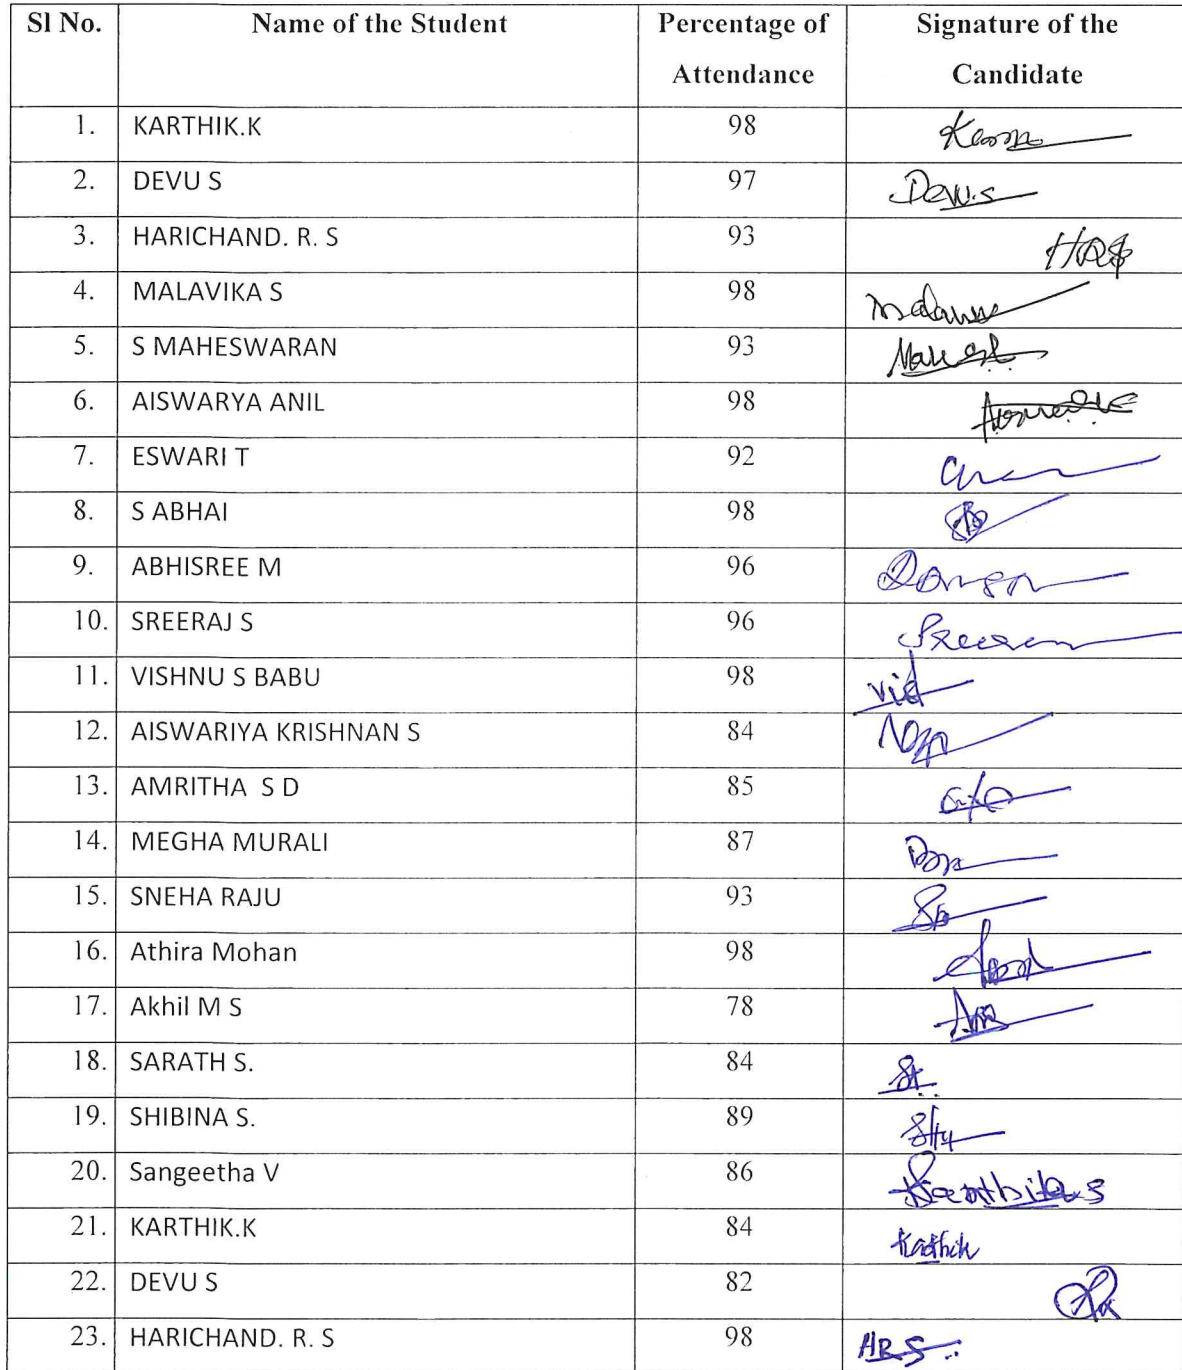 Sl No. Name of the Student Percentage of Attendance Signature of the Candidate
1. KARTHIK.K 98
2. DEVU S 97 Devu.s
3. HARICHAND. R. S 93 HRS
4. MALAVIKA S 98
5. S MAHESWARAN 93
6. AISWARYA ANIL 98
7. ESWARI T 92
8. S ABHAI 98
9. ABHISREE M 96
10. SREERAJ S 96
11. VISHNU S BABU 98
12. AISWARIYA KRISHNAN S 84
13. AMRITHA S D 85
14. MEGHA MURALI 87
15. SNEHA RAJU 93
16. Athira Mohan 98
17. Akhil M S 78
18. SARATH S. 84
19. SHIBINA S. 89
20. Sangeetha V 86
21. KARTHIK.K 84 Karthik
22. DEVU S 82
23. HARICHAND. R. S 98 HRS